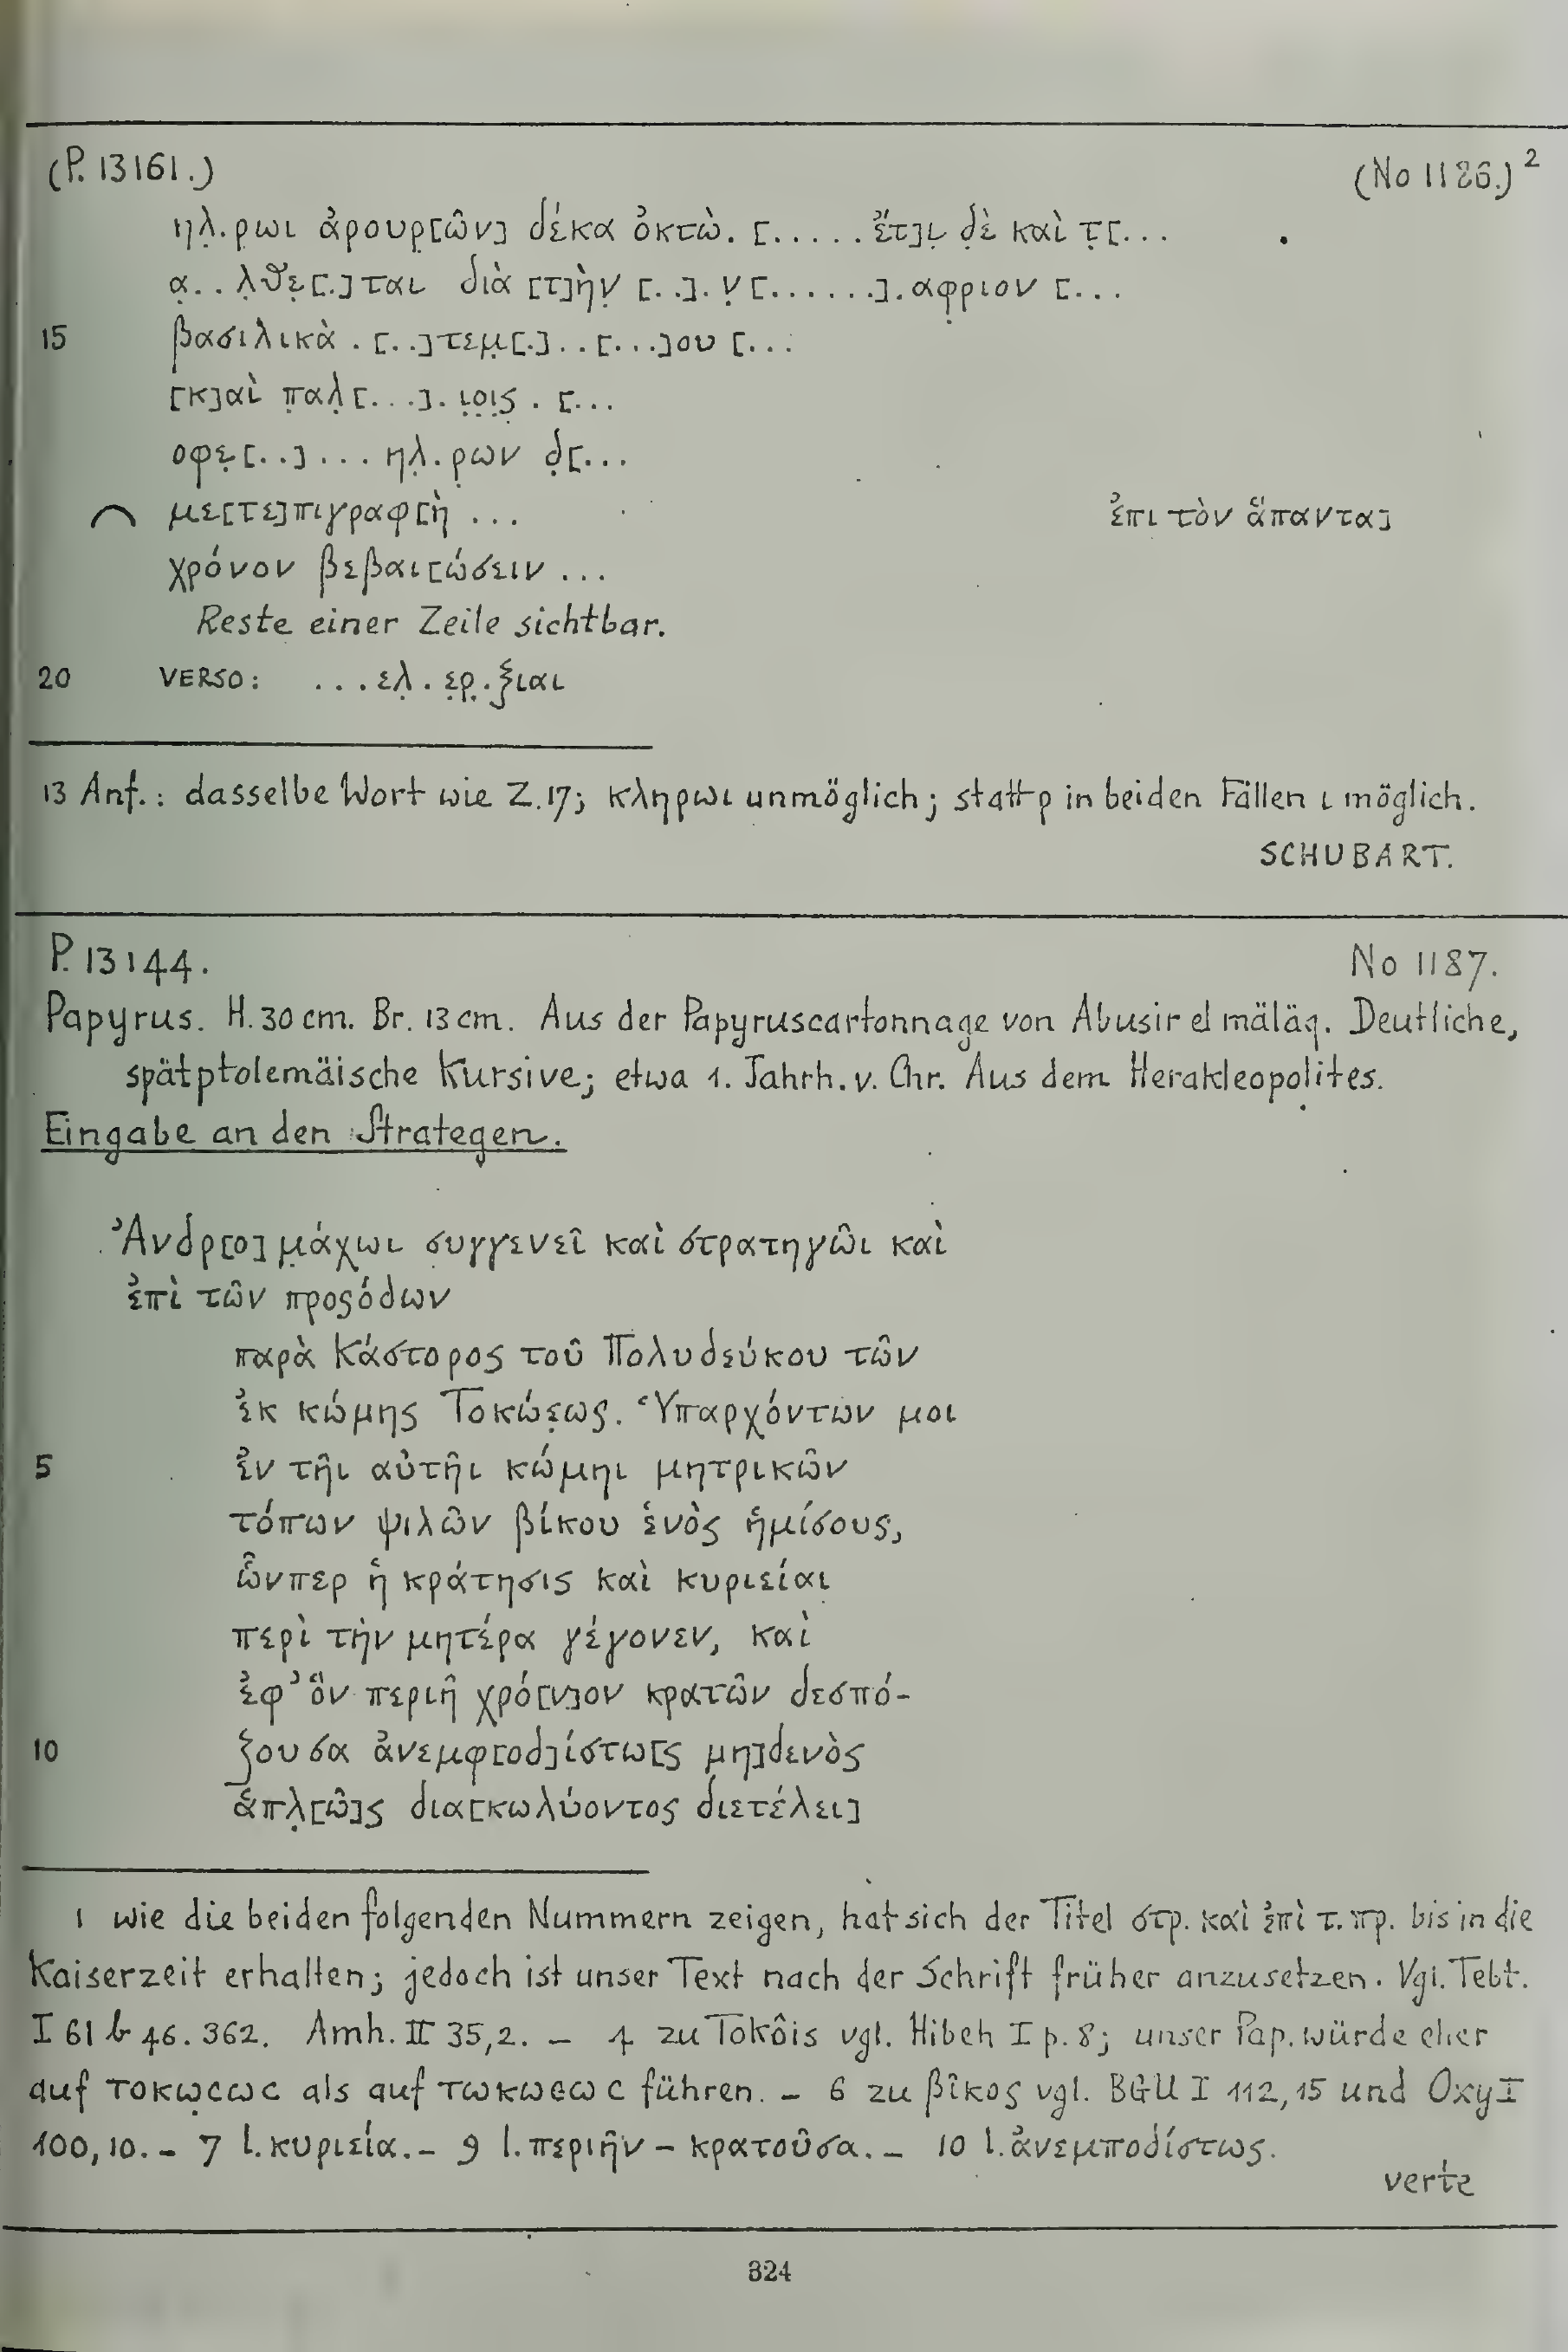 (P. 13161.) (No 1186.)²
ηλ̣.ρωι ἀρουρ[ῶν] δέκα ὀκτὼ. [.....ἔτ]ι̣ δ̣ὲ καὶ τ̣[...
α̣..λ̣θε̣[.]ται διὰ [τ]ὴν̣ [..].ν̣[......].αφ̣ριον [...
15 βασιλικὰ.[..]τεμ̣[.]..[...]ου [...
[κ]αὶ π̣αλ̣[...].ι̣ο̣ι̣ς.[...
οφε̣[..]...ηλ̣.ρων δ̣[...
με[τε]πιγραφ[ὴ ... ἐπι τὸν ἅπαντα]
χρόνον βεβαι[ώσειν ...
Reste einer Zeile sichtbar.
20 VERSO: ...ελ̣.ε̣ρ̣.ξιαι
13 Anf.: dasselbe Wort wie Z.17; κληρωι unmöglich; statt ρ in beiden Fällen ι möglich.
SCHUBART.
P. 13144. No 1187.
Papyrus. H. 30 cm. Br. 13 cm. Aus der Papyruscartonnage von Abusir el mäläq. Deutliche,
spätptolemäische Kursive; etwa 1. Jahrh. v. Chr. Aus dem Herakleopolites.
Eingabe an den Strategen.
Ἀνδρ[ο]μ̣άχωι συγγενεῖ καὶ στρατηγῶι καὶ
ἐπὶ τῶν προςόδων
παρὰ Κάστορος τοῦ Πολυδεύκου τῶν
ἐκ κώμης Τοκώε̣ως. Ὑπαρχόντων μοι
5 ἐν τῆι αὐτῆι κώμηι μητρικῶν
τόπων ψιλῶν βίκου ἑνὸς ἡμίσους,
ὧνπερ ἡ κράτησις καὶ κυριείαι
περὶ τὴν μητέρα γέγονεν, καὶ
ἐφ' ὃν περιῆ χρό[ν]ον κρατῶν δεσπό-
10 ζουσα ἀνεμφ[οδ]ίστω[ς μη]δενὸς
ἁπλ̣[ῶ]ς δια[κωλύοντος διετέλει]
1 wie die beiden folgenden Nummern zeigen, hat sich der Titel στρ. καὶ ἐπὶ τ. πρ. bis in die
Kaiserzeit erhalten; jedoch ist unser Text nach der Schrift früher anzusetzen. Vgl. Tebt.
I 61 b 46. 362. Amh. II 35,2. – 4 zu Tokôis vgl. Hibeh I p. 8; unser Pap. würde eher
auf τοκωε̣ωϲ als auf τωκωεωϲ führen. – 6 zu βῖκος vgl. BGU I 112,15 und Oxy I
100,10. – 7 l. κυριεία. – 9 l. περιῆν – κρατοῦσα. – 10 l. ἀνεμποδίστως.
verte
324